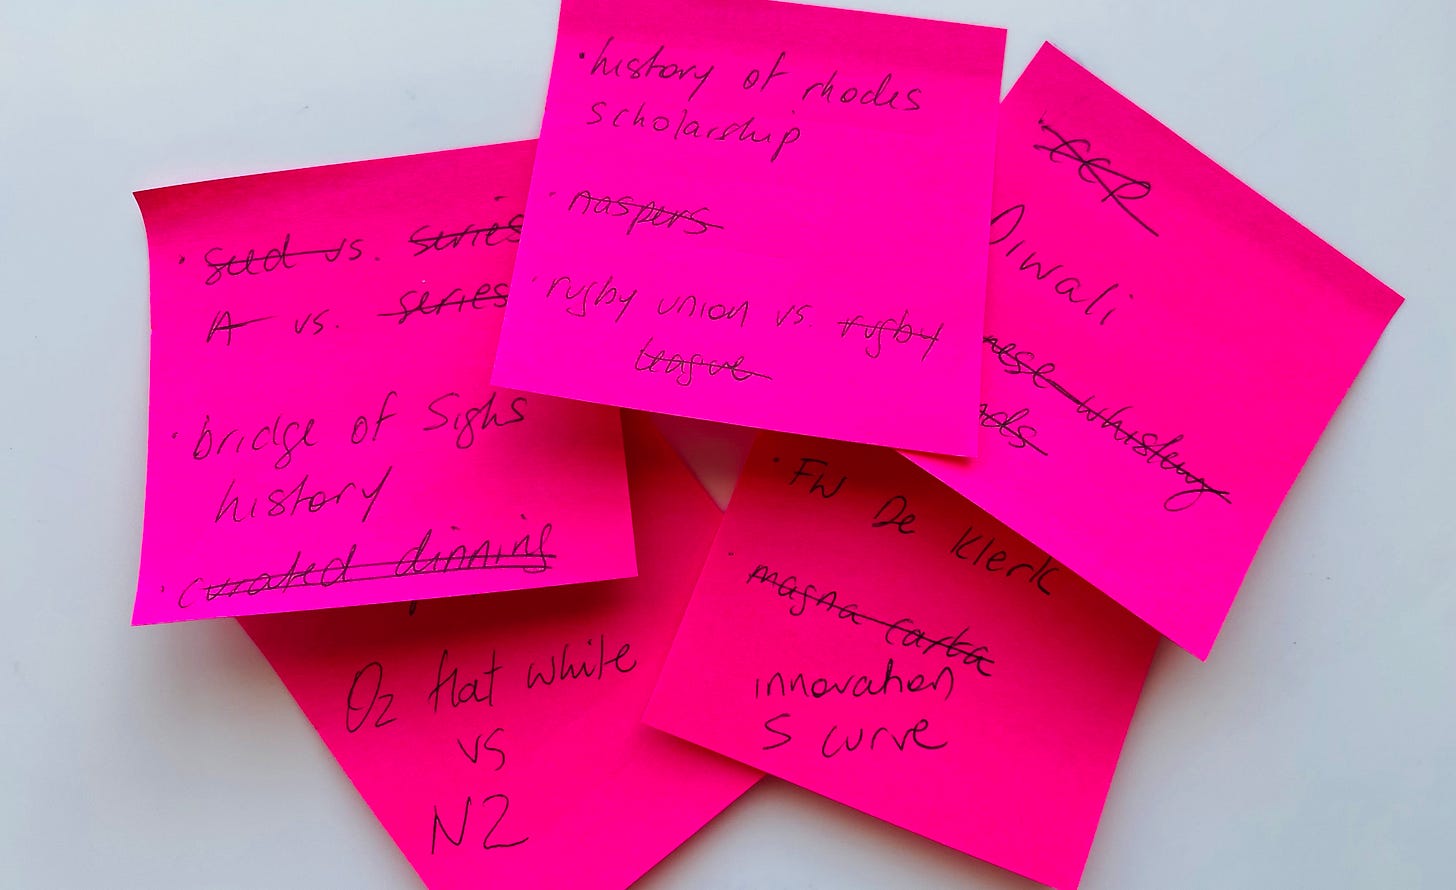 • history of rhodes
scholarship
• naspers
• rugby union vs. rugby
league
• seed vs. series
A vs. series
• bridge of Sighs
history
• curated dinning
Diwali
whistling
• FW De Klerk
• magna carta
innovation
S curve
Oz flat white
vs
NZ